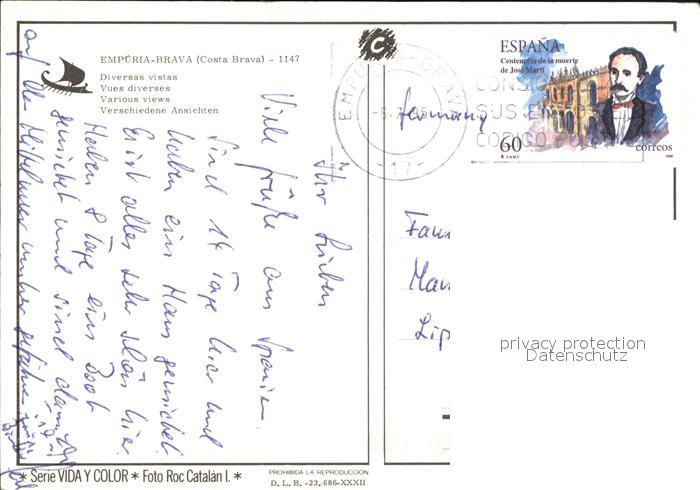 EMPÚRIA-BRAVA (Costa Brava) - 1147
Diversas vistas
Vues diverses
Various views
Verschiedene Ansichten
Ihr Lieben
Viele Grüße aus Spanien.
Sind 14 Tage hier und
haben ein Haus gemietet.
Es ist alles sehr schön hier.
Haben 8 Tage ein Boot
gemietet und sind dann
auf dem Mittelmeer umher gefahren
ESPAÑA
Centenario de la muerte
de José Martí
60
correos
EMPURIA-BRAVA
Germany
Fam
Man
Lip
privacy protection
Datenschutz
* Serie VIDA Y COLOR * Foto Roc Catalán I. *
PROHIBIDA LA REPRODUCCION
D. L. B. -23, 686-XXXII